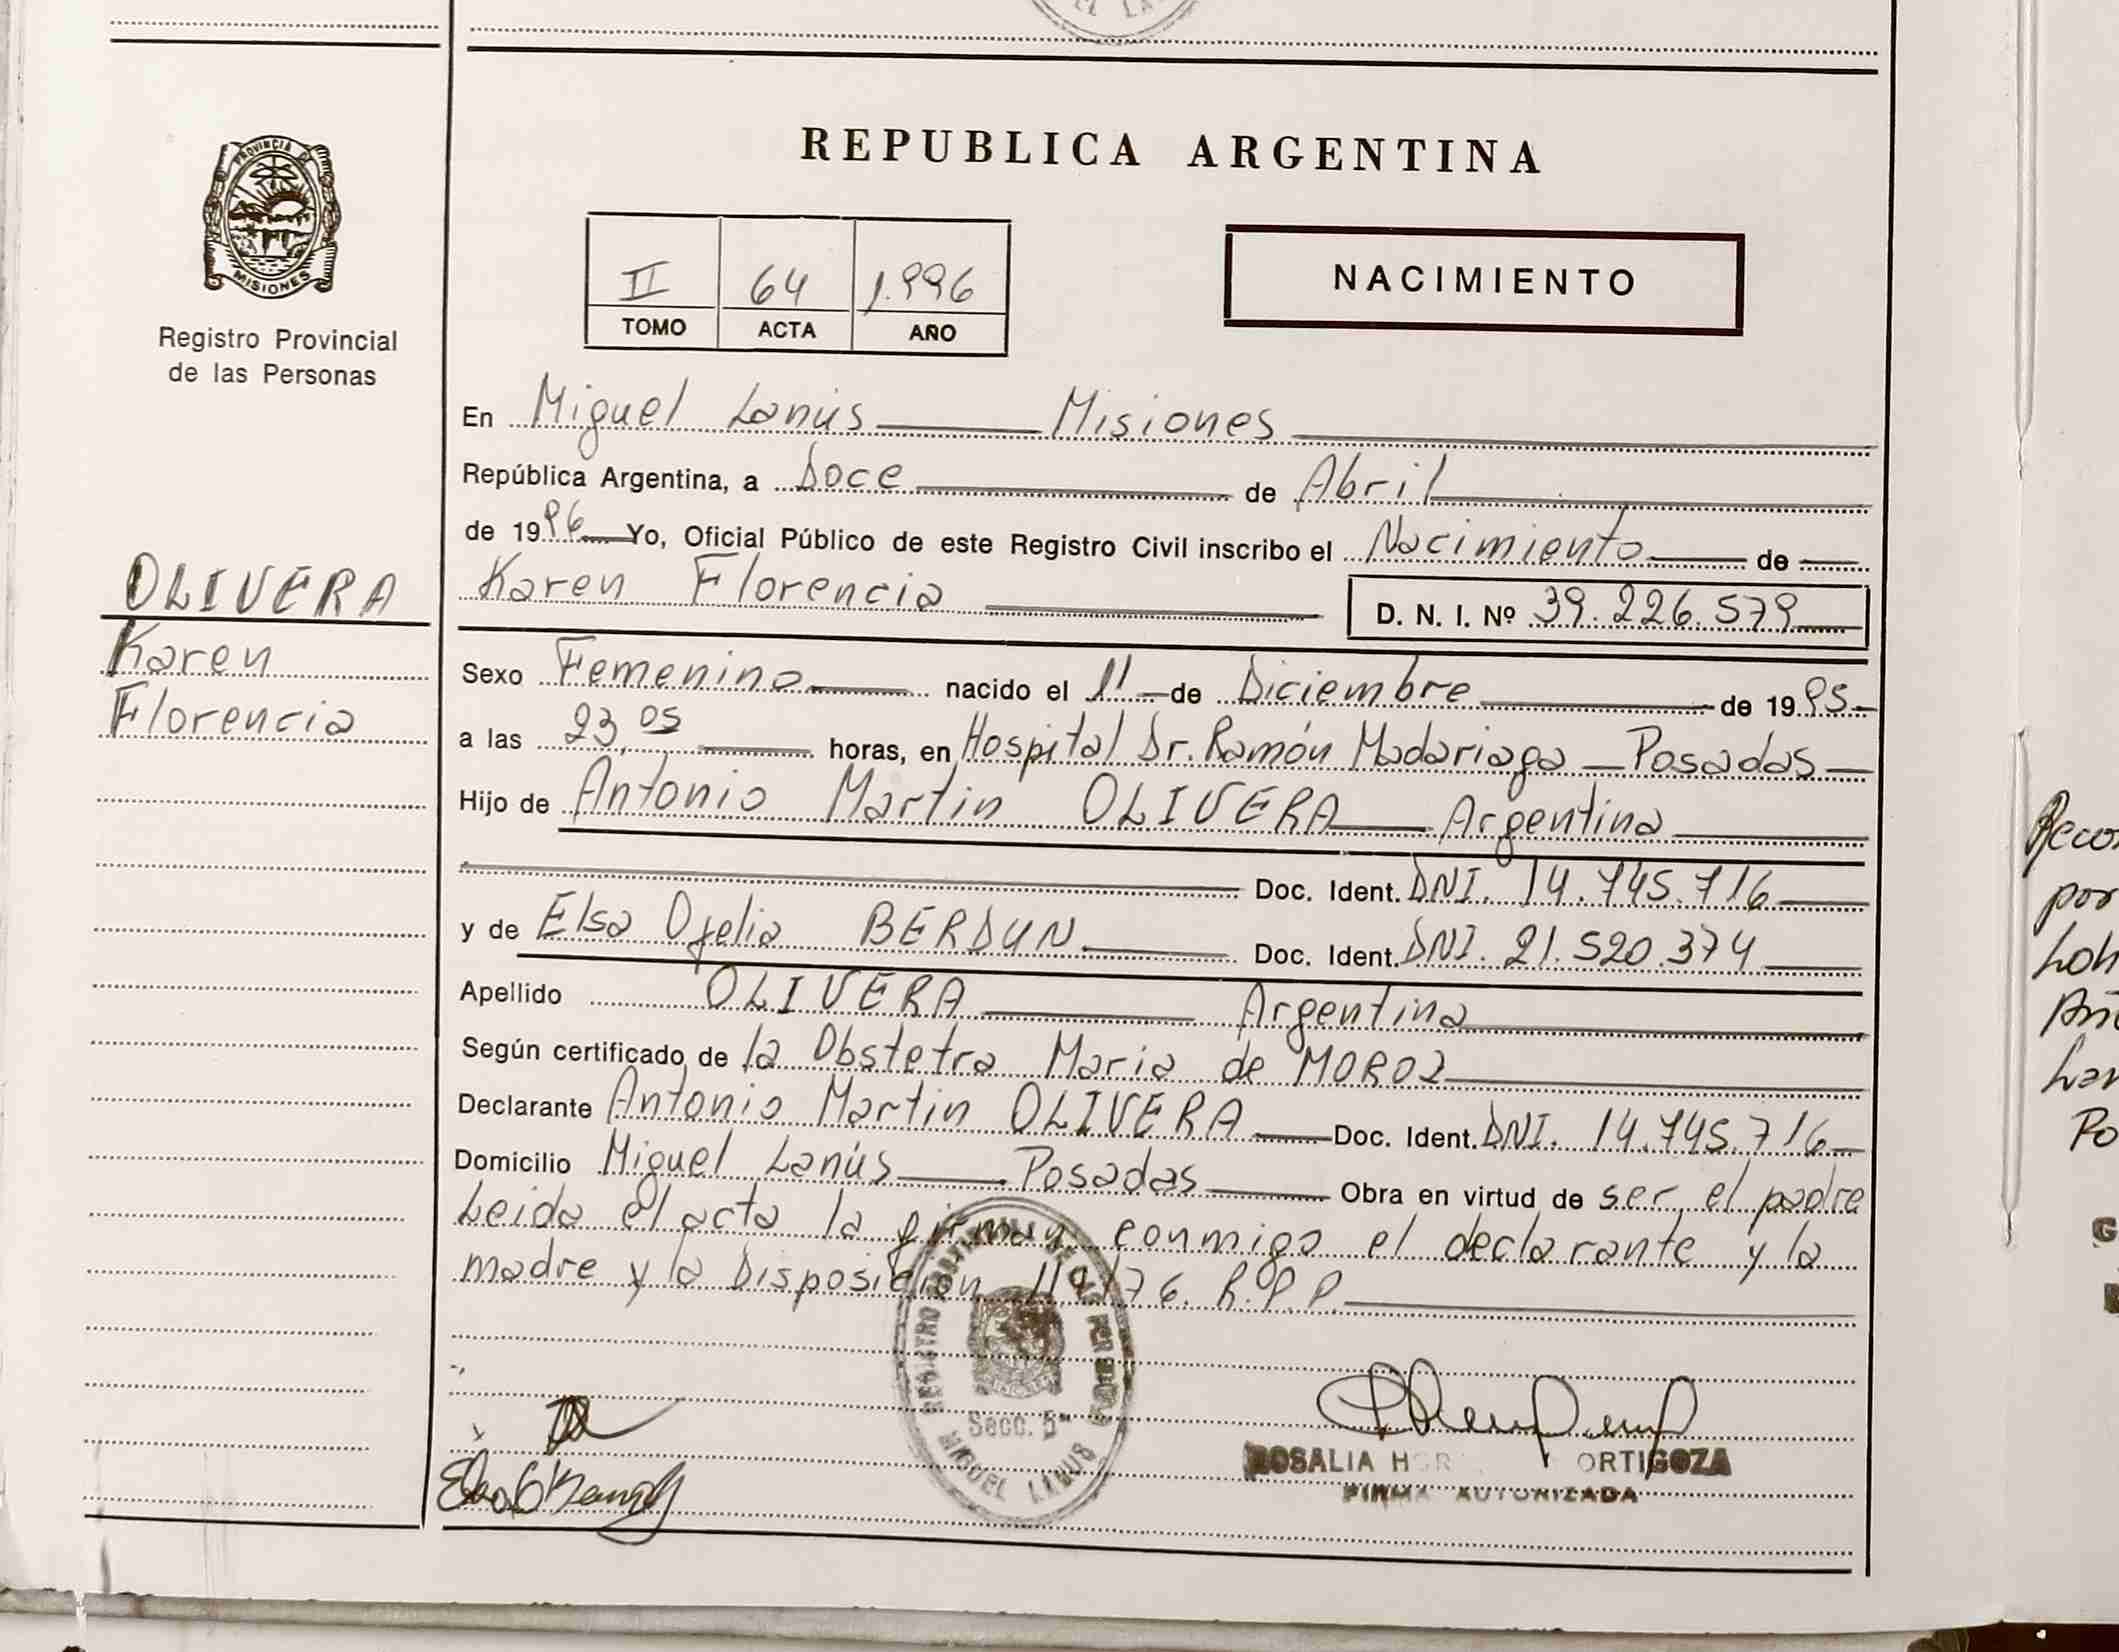 EL LA
REPUBLICA ARGENTINA
PROVINCIA DE
MISIONES
Registro Provincial
de las Personas
II 64 1.996
TOMO ACTA AÑO
NACIMIENTO
En Miguel Lanús Misiones
República Argentina, a Doce de Abril
de 1996 Yo, Oficial Público de este Registro Civil inscribo el Nacimiento de
Karen Florencia D. N. I. Nº 39.226.579
OLIVERA
Karen
Florencia
Sexo Femenino nacido el 11 de Diciembre de 1995
a las 23,05 horas, en Hospital Dr. Ramón Madariaga - Posadas
Hijo de Antonio Martin OLIVERA Argentina
Doc. Ident. DNI. 14.745.716
y de Elsa Ofelia BERDUN Doc. Ident. DNI. 21.520.374
Apellido OLIVERA Argentina
Según certificado de la Obstetra Maria de MOROZ
Declarante Antonio Martin OLIVERA Doc. Ident. DNI. 14.745.716
Domicilio Miguel Lanús Posadas Obra en virtud de ser el padre
Leida el acta la firman conmigo el declarante y la
madre y la Disposición 119/76. R.P.P.
REGISTRO PROVINCIAL DE LAS PERSONAS
Secc. 5ª
MIGUEL LANUS
ROSALIA HOR ORTIGOZA
FIRMA AUTORIZADA
por
Po